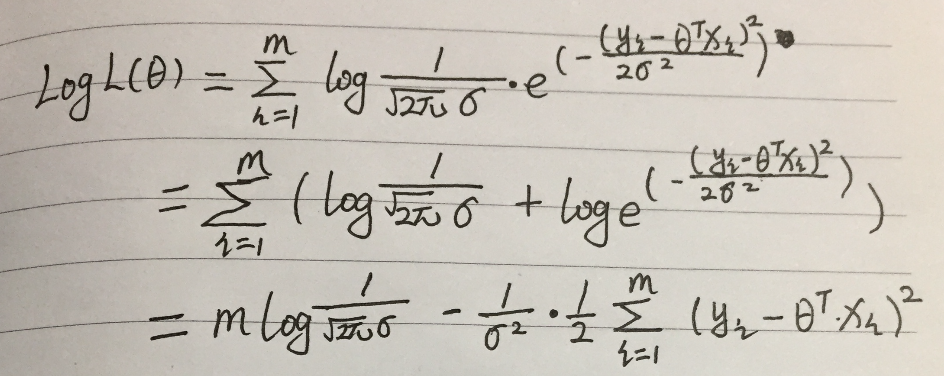 Log L(θ) = \sum_{i=1}^{m} log \frac{1}{\sqrt{2π} σ} · e^{(-\frac{(y_i - θ^T x_i)^2}{2σ^2})}
= \sum_{i=1}^{m} ( log \frac{1}{\sqrt{2π} σ} + log e^{(-\frac{(y_i - θ^T x_i)^2}{2σ^2})} )
= m log \frac{1}{\sqrt{2π} σ} - \frac{1}{σ^2} · \frac{1}{2} \sum_{i=1}^{m} (y_i - θ^T · x_i)^2